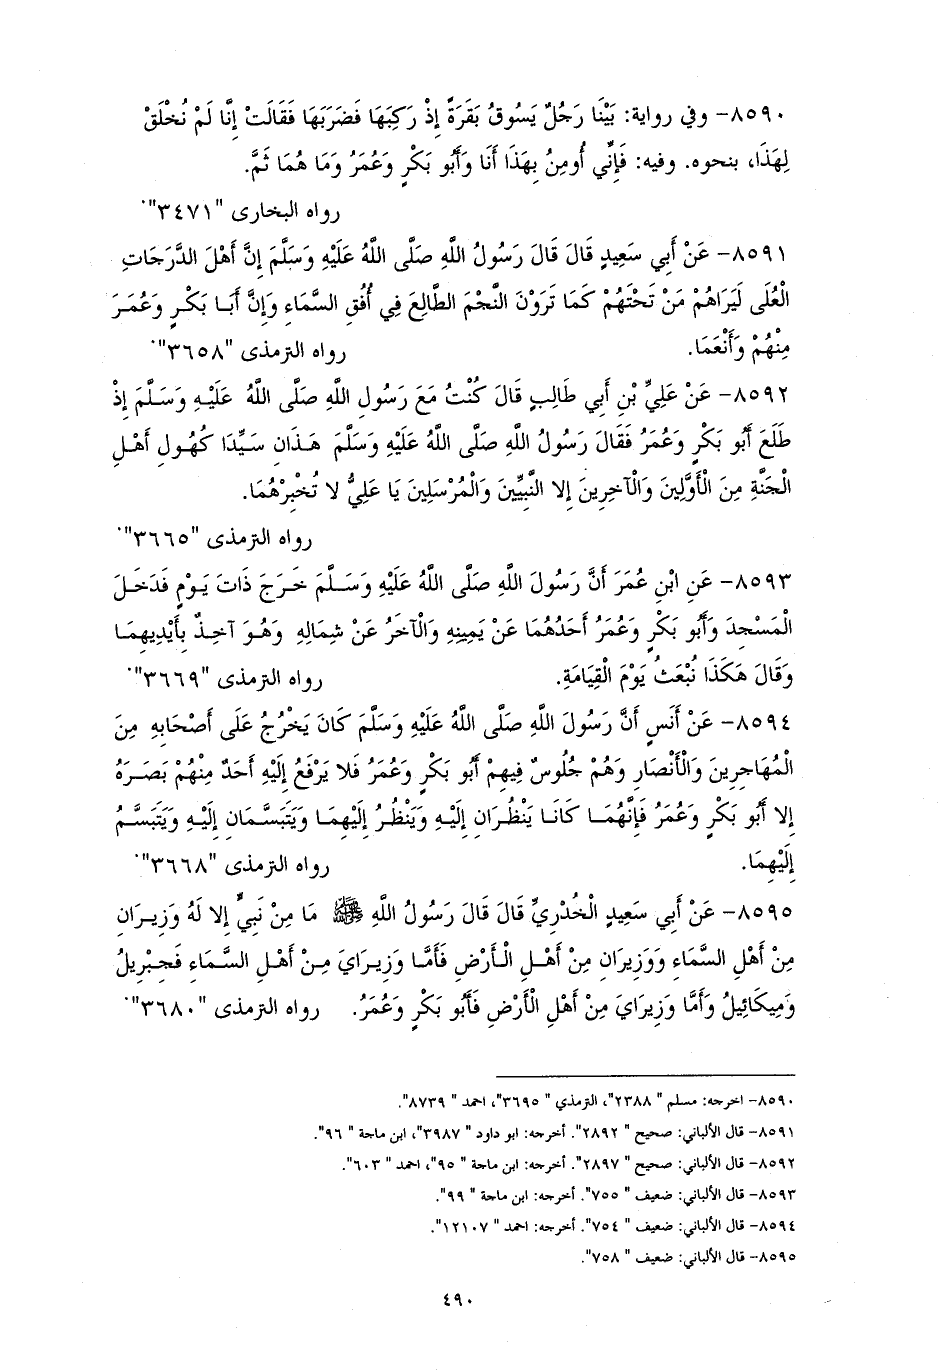 ٨٥٩٠- وفي رواية: بَيْنَا رَجُلٌ يَسُوقُ بَقَرَةً إِذْ رَكِبَهَا فَضَرَبَهَا فَقَالَتْ إِنَّا لَمْ نُخْلَقْ
لِهَذَا، بنحوه. وفيه: فَإِنِّي أُومِنُ بِهَذَا أَنَا وَأَبُو بَكْرٍ وَعُمَرُ وَمَا هُمَا ثَمَّ.
رواه البخارى "٣٤٧١".
٨٥٩١- عَنْ أَبِي سَعِيدٍ قَالَ قَالَ رَسُولُ اللَّهِ صَلَّى اللَّهُ عَلَيْهِ وَسَلَّمَ إِنَّ أَهْلَ الدَّرَجَاتِ
الْعُلَى لَيَرَاهُمْ مَنْ تَحْتَهُمْ كَمَا تَرَوْنَ النَّجْمَ الطَّالِعَ فِي أُفُقِ السَّمَاءِ وَإِنَّ أَبَا بَكْرٍ وَعُمَرَ
مِنْهُمْ وَأَنْعَمَا. رواه الترمذى "٣٦٥٨".
٨٥٩٢- عَنْ عَلِيِّ بْنِ أَبِي طَالِبٍ قَالَ كُنْتُ مَعَ رَسُولِ اللَّهِ صَلَّى اللَّهُ عَلَيْهِ وَسَلَّمَ إِذْ
طَلَعَ أَبُو بَكْرٍ وَعُمَرُ فَقَالَ رَسُولُ اللَّهِ صَلَّى اللَّهُ عَلَيْهِ وَسَلَّمَ هَذَانِ سَيِّدَا كُهُولِ أَهْلِ
الْجَنَّةِ مِنَ الْأَوَّلِينَ وَالْآخِرِينَ إِلا النَّبِيِّينَ وَالْمُرْسَلِينَ يَا عَلِيُّ لا تُخْبِرْهُمَا.
رواه الترمذى "٣٦٦٥".
٨٥٩٣- عَنِ ابْنِ عُمَرَ أَنَّ رَسُولَ اللَّهِ صَلَّى اللَّهُ عَلَيْهِ وَسَلَّمَ خَرَجَ ذَاتَ يَوْمٍ فَدَخَلَ
الْمَسْجِدَ وَأَبُو بَكْرٍ وَعُمَرُ أَحَدُهُمَا عَنْ يَمِينِهِ وَالْآخَرُ عَنْ شِمَالِهِ وَهُوَ آخِذٌ بِأَيْدِيهِمَا
وَقَالَ هَكَذَا نُبْعَثُ يَوْمَ الْقِيَامَةِ. رواه الترمذى "٣٦٦٩".
٨٥٩٤- عَنْ أَنَسٍ أَنَّ رَسُولَ اللَّهِ صَلَّى اللَّهُ عَلَيْهِ وَسَلَّمَ كَانَ يَخْرُجُ عَلَى أَصْحَابِهِ مِنَ
الْمُهَاجِرِينَ وَالْأَنْصَارِ وَهُمْ جُلُوسٌ فِيهِمْ أَبُو بَكْرٍ وَعُمَرُ فَلا يَرْفَعُ إِلَيْهِ أَحَدٌ مِنْهُمْ بَصَرَهُ
إِلا أَبُو بَكْرٍ وَعُمَرُ فَإِنَّهُمَا كَانَا يَنْظُرَانِ إِلَيْهِ وَيَنْظُرُ إِلَيْهِمَا وَيَتَبَسَّمَانِ إِلَيْهِ وَيَتَبَسَّمُ
إِلَيْهِمَا. رواه الترمذى "٣٦٦٨".
٨٥٩٥- عَنْ أَبِي سَعِيدٍ الْخُدْرِيِّ قَالَ قَالَ رَسُولُ اللَّهِ ﷺ مَا مِنْ نَبِيٍّ إِلا لَهُ وَزِيرَانِ
مِنْ أَهْلِ السَّمَاءِ وَوَزِيرَانِ مِنْ أَهْلِ الْأَرْضِ فَأَمَّا وَزِيرَايَ مِنْ أَهْلِ السَّمَاءِ فَجِبْرِيلُ
وَمِيكَائِيلُ وَأَمَّا وَزِيرَايَ مِنْ أَهْلِ الْأَرْضِ فَأَبُو بَكْرٍ وَعُمَرُ. رواه الترمذى "٣٦٨٠".
٨٥٩٠- اخرجه: مسلم "٢٣٨٨"، الترمذي "٣٦٩٥"، احمد "٨٧٣٩".
٨٥٩١- قال الألباني: صحيح "٢٨٩٢". أخرجه: ابو داود "٣٩٨٧"، ابن ماجة "٩٦".
٨٥٩٢- قال الألباني: صحيح "٢٨٩٧". أخرجه: ابن ماجة "٩٥"، احمد "٦٠٣".
٨٥٩٣- قال الألباني: ضعيف "٧٥٥". أخرجه: ابن ماجة "٩٩".
٨٥٩٤- قال الألباني: ضعيف "٧٥٤". أخرجه: احمد "١٢١٠٧".
٨٥٩٥- قال الألباني: ضعيف "٧٥٨".
٤٩٠